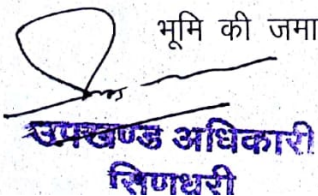 भूमि की जमा
उपखण्ड अधिकारी
सिणधरी